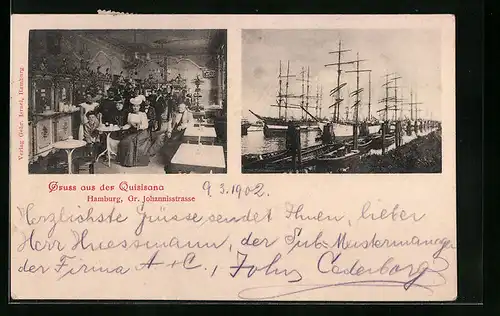 Verlag Gebr. Isrnel, Hamburg
Gruss aus der Quisisana
Hamburg, Gr. Johannisstrasse
9.3.1902.
Herzlichste Grüsse sendet Ihnen, lieber
Herr Huessmann, der Sub-Meistermanager
der Firma A. + C., John Cederborg